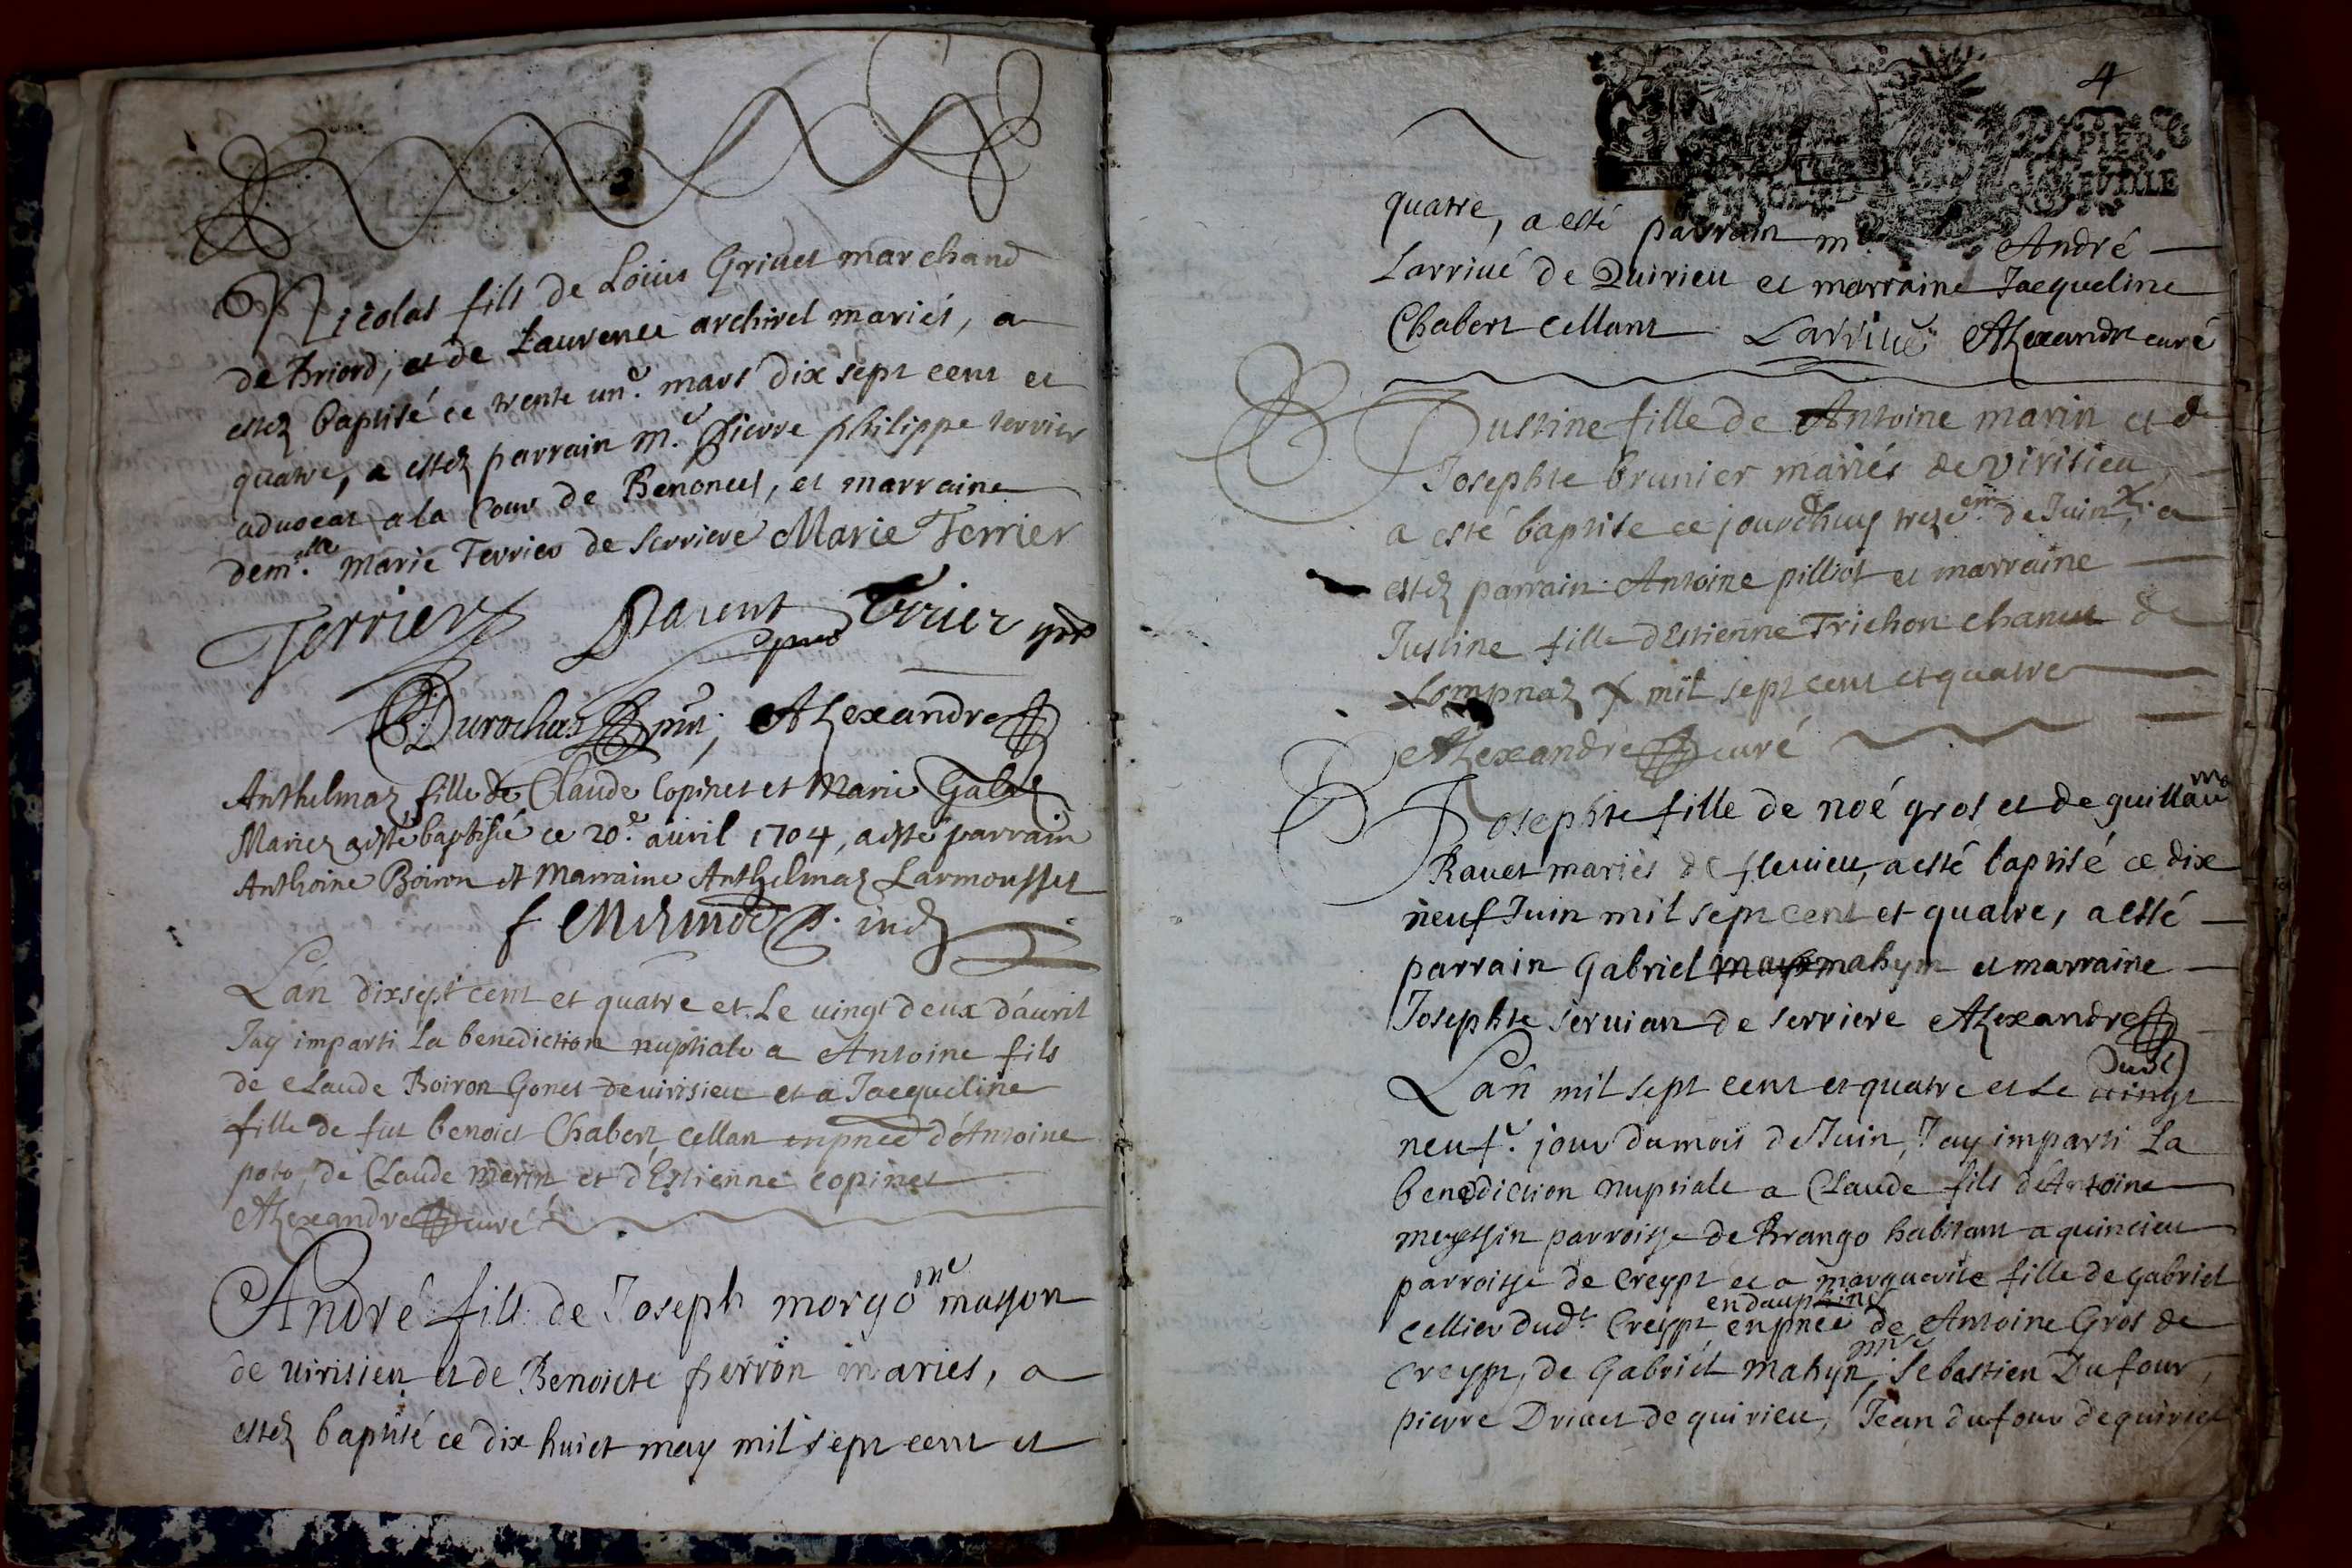 Nicolas fils de Loüis Griuet marchand
de Briord, et de Laurence archirel mariés, a
estez baptisé ce trente un.e mars dix sept cent et
quatre, a estez parrain m.e Pierre philippe terrier
aduocat a la Cour de Benonces, et marraine
dem.lle Marie Terrier de Serriere Marie Terrier
Terrier Parent Terrier
Durochat pnt; Alexandre
Anthelmaz fille de Claude Copinet et Marie Galaz
Mariez a esté baptisée ce 20.e auril 1704, a esté parrain
Anthoine Boiron et Marraine Anthelmaz Larmousset
Lan dixsept cent et quatre et Le uingt deux d'auril
Jay imparti La benediction nuptiale a Antoine fils
de claude Boiron Gonet de uirisieu et a Jacqueline
fille de fut benoict Chabert cellan enpnce d'Antoine
poto, de Claude Marin et d'Estienne copinet
Alexandre curé
André fils de Joseph morgo mne masson
de uirisieu et de Benoicte perron mariés, a
estez baptisé ce dix huict may mil sept cent et
4
PAPIER
quatre, a esté parrain m.e André
Larriué de Quirieu et marraine Jacqueline
Chabert cellant Larriué Alexandre curé
Justine fille de Antoine marin et d
Josephte brunier mariés de virisieu,
a esté baptisé ce jourdhuy trez em. de Juin X, a
estez parrain Antoine pilliot et marraine
Justine fille dEstienne Trichon chanut de
Lompnaz X mil sept cent et quatre
Alexandre curé
Josephte fille de noé gros et de guillau ma
Rauet mariés de fleuieu, a esté baptisé ce dix
neuf Juin mil sept cent et quatre, a esté
parrain Gabriel mahyn et marraine
Josephte seruian de serriere Alexandre
Dudt
Lan mil sept cent et quatre et Le uingt
neuf.e jour du mois de Juin, Jay imparti La
benediction nuptiale a Claude fils d'Antoine
meyssin parroisse de Brango habitant a quincieu
parroisse de Creypt et a marguerite fille de gabriel
en dauphiné
cellier dudt Creypt enpnce de Antoine Gros de
mre
Creypt, de Gabriel Mahyn, Sebastien Dufour,
pierre Driuet de quirieu, Jean dufour de quirieu